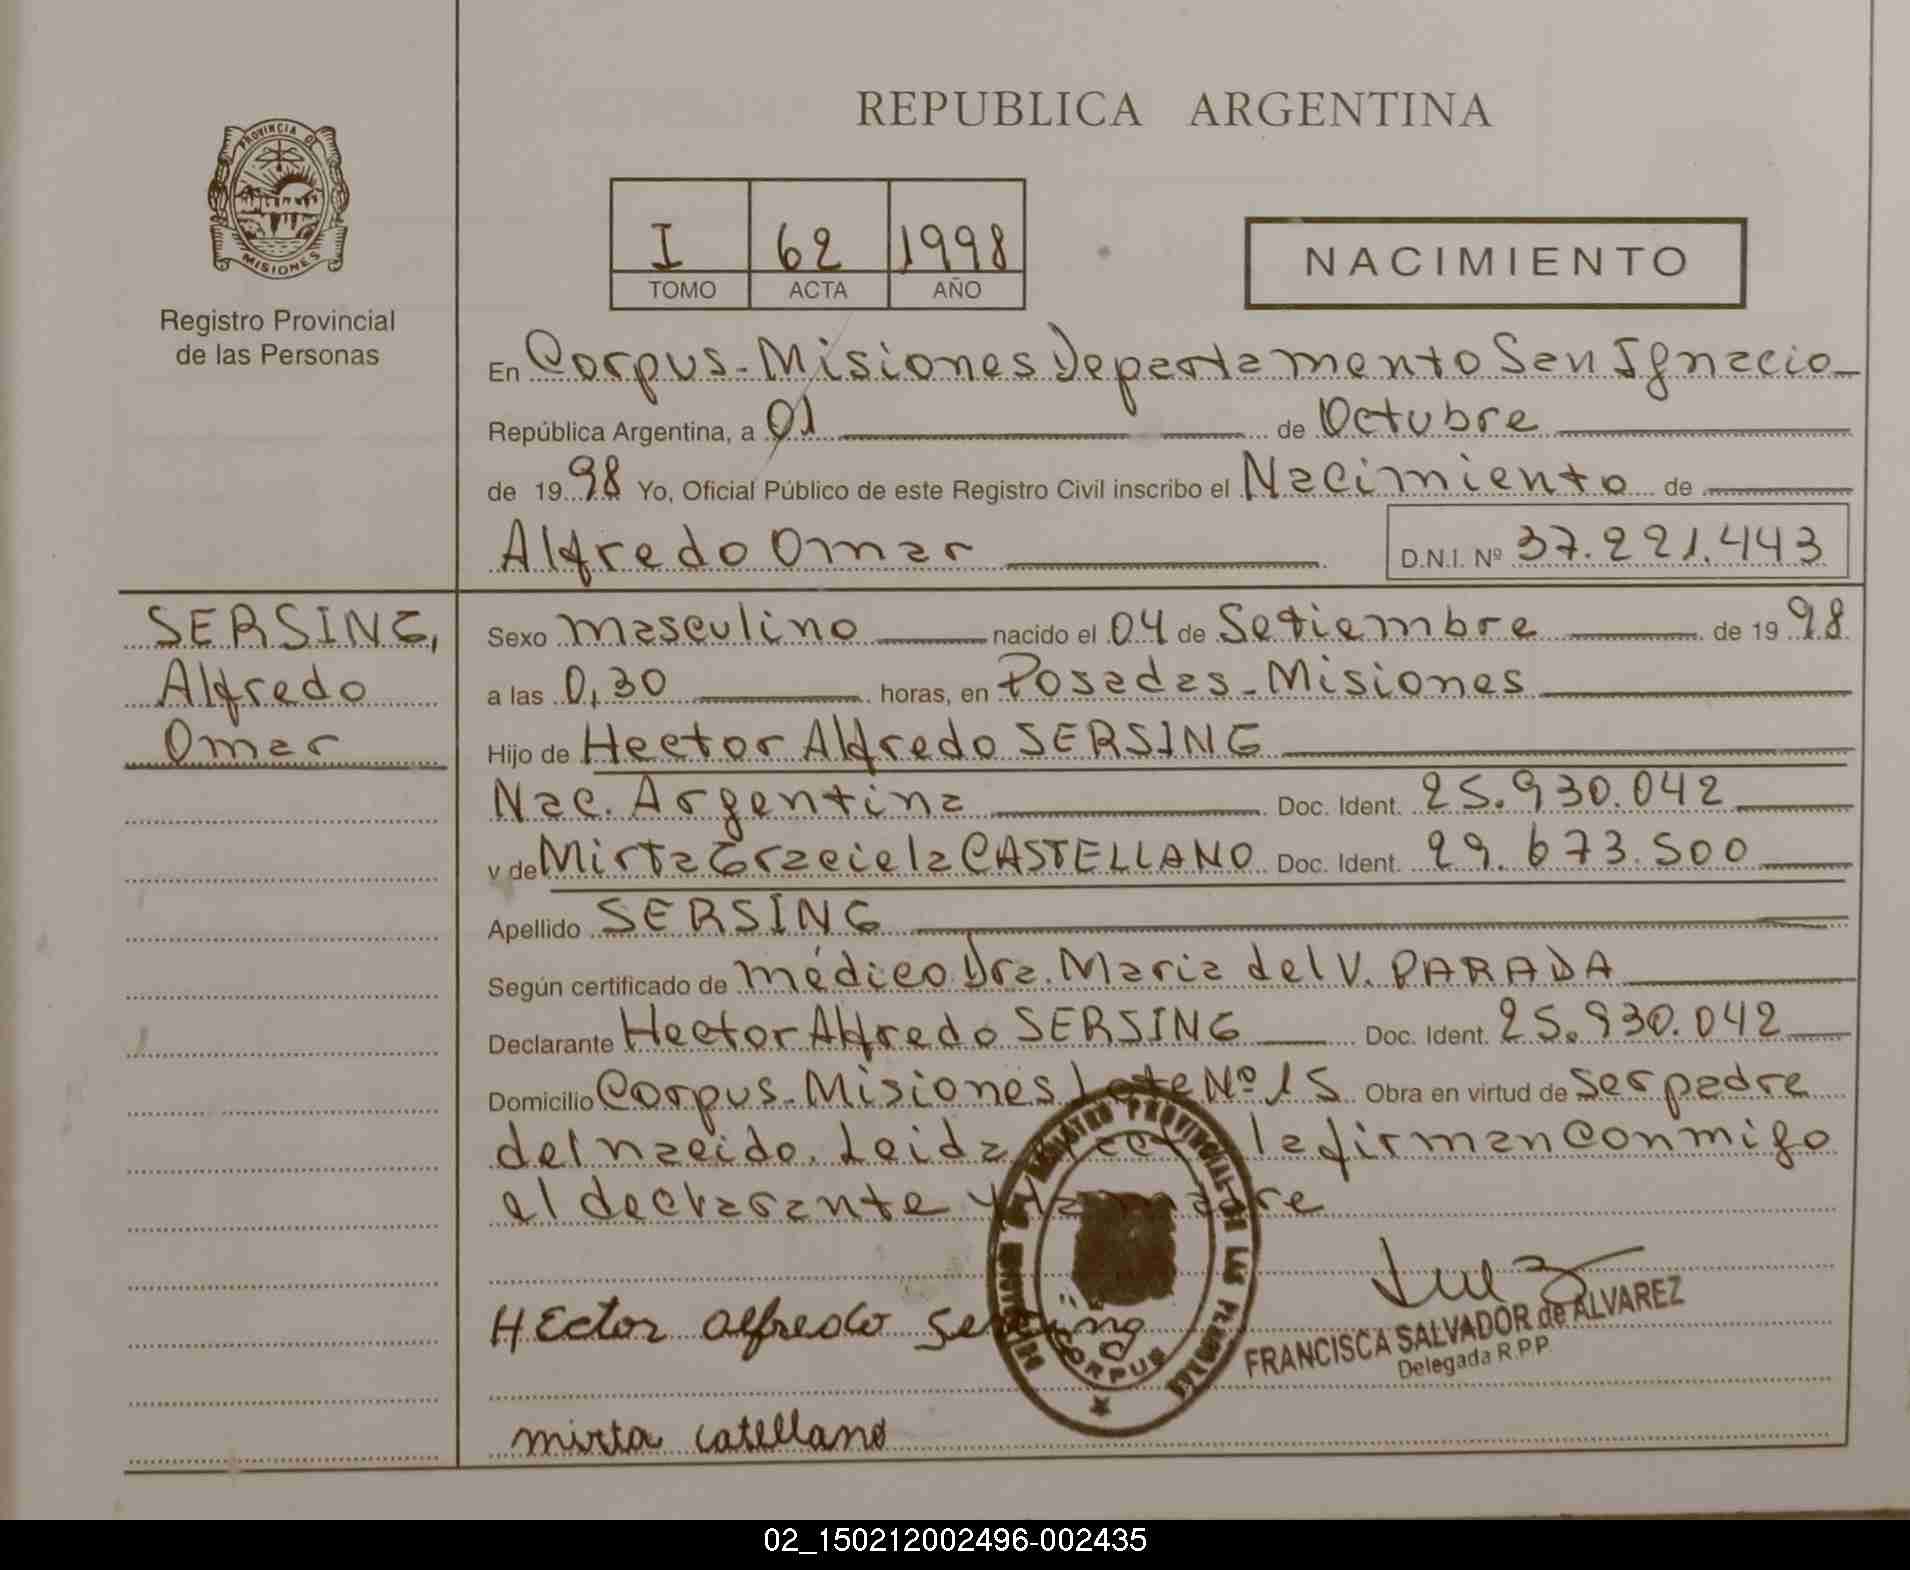 REPUBLICA ARGENTINA
PROVINCIA DE
MISIONES
Registro Provincial
de las Personas
I 62 1998
TOMO ACTA AÑO
NACIMIENTO
En Corpus-Misiones Departamento San Ignacio
República Argentina, a 01 de Octubre
de 1998 Yo, Oficial Público de este Registro Civil inscribo el Nacimiento de
Alfredo Omar D.N.I. Nº 37.221.443
SERSING,
Alfredo
Omar
Sexo masculino nacido el 04 de Setiembre de 1998
a las 0,30 horas, en Posadas-Misiones
Hijo de Hector Alfredo SERSING
Nac. Argentina Doc. Ident. 25.930.042
y de Mirta Graciela CASTELLANO Doc. Ident. 29.673.500
Apellido SERSING
Según certificado de médico Dra. Maria del V. PARADA
Declarante Hector Alfredo SERSING Doc. Ident. 25.930.042
Domicilio Corpus-Misiones Lote Nº 15 Obra en virtud de ser padre
del nacido. Leida acta la firman conmigo
el declarante y la madre
REGISTRO PROVINCIAL DE LAS PERSONAS
CORPUS
Hector alfredo Sersing
FRANCISCA SALVADOR de ALVAREZ
Delegada R.P.P
mirta catellano
02_150212002496-002435